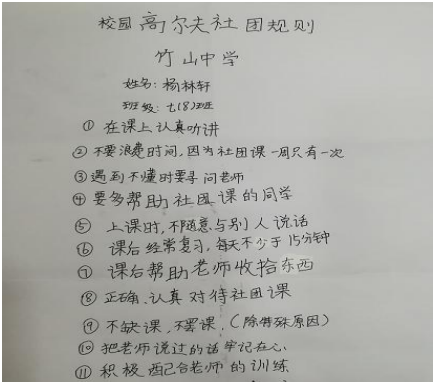 校园高尔夫社团规则
竹山中学
姓名:杨林轩
班级:七(8)班
①在课上认真听讲
②不要浪费时间,因为社团课一周只有一次
③遇到不懂时要寻问老师
④要多帮助社团课的同学
⑤上课时,不随意与别人说话
⑥课后经常复习,每天不少于15分钟
⑦课后帮助老师收拾东西
⑧正确、认真对待社团课
⑨不缺课,不罢课,(除特殊原因)
⑩把老师说过的话牢记在心
⑪积极配合老师的训练